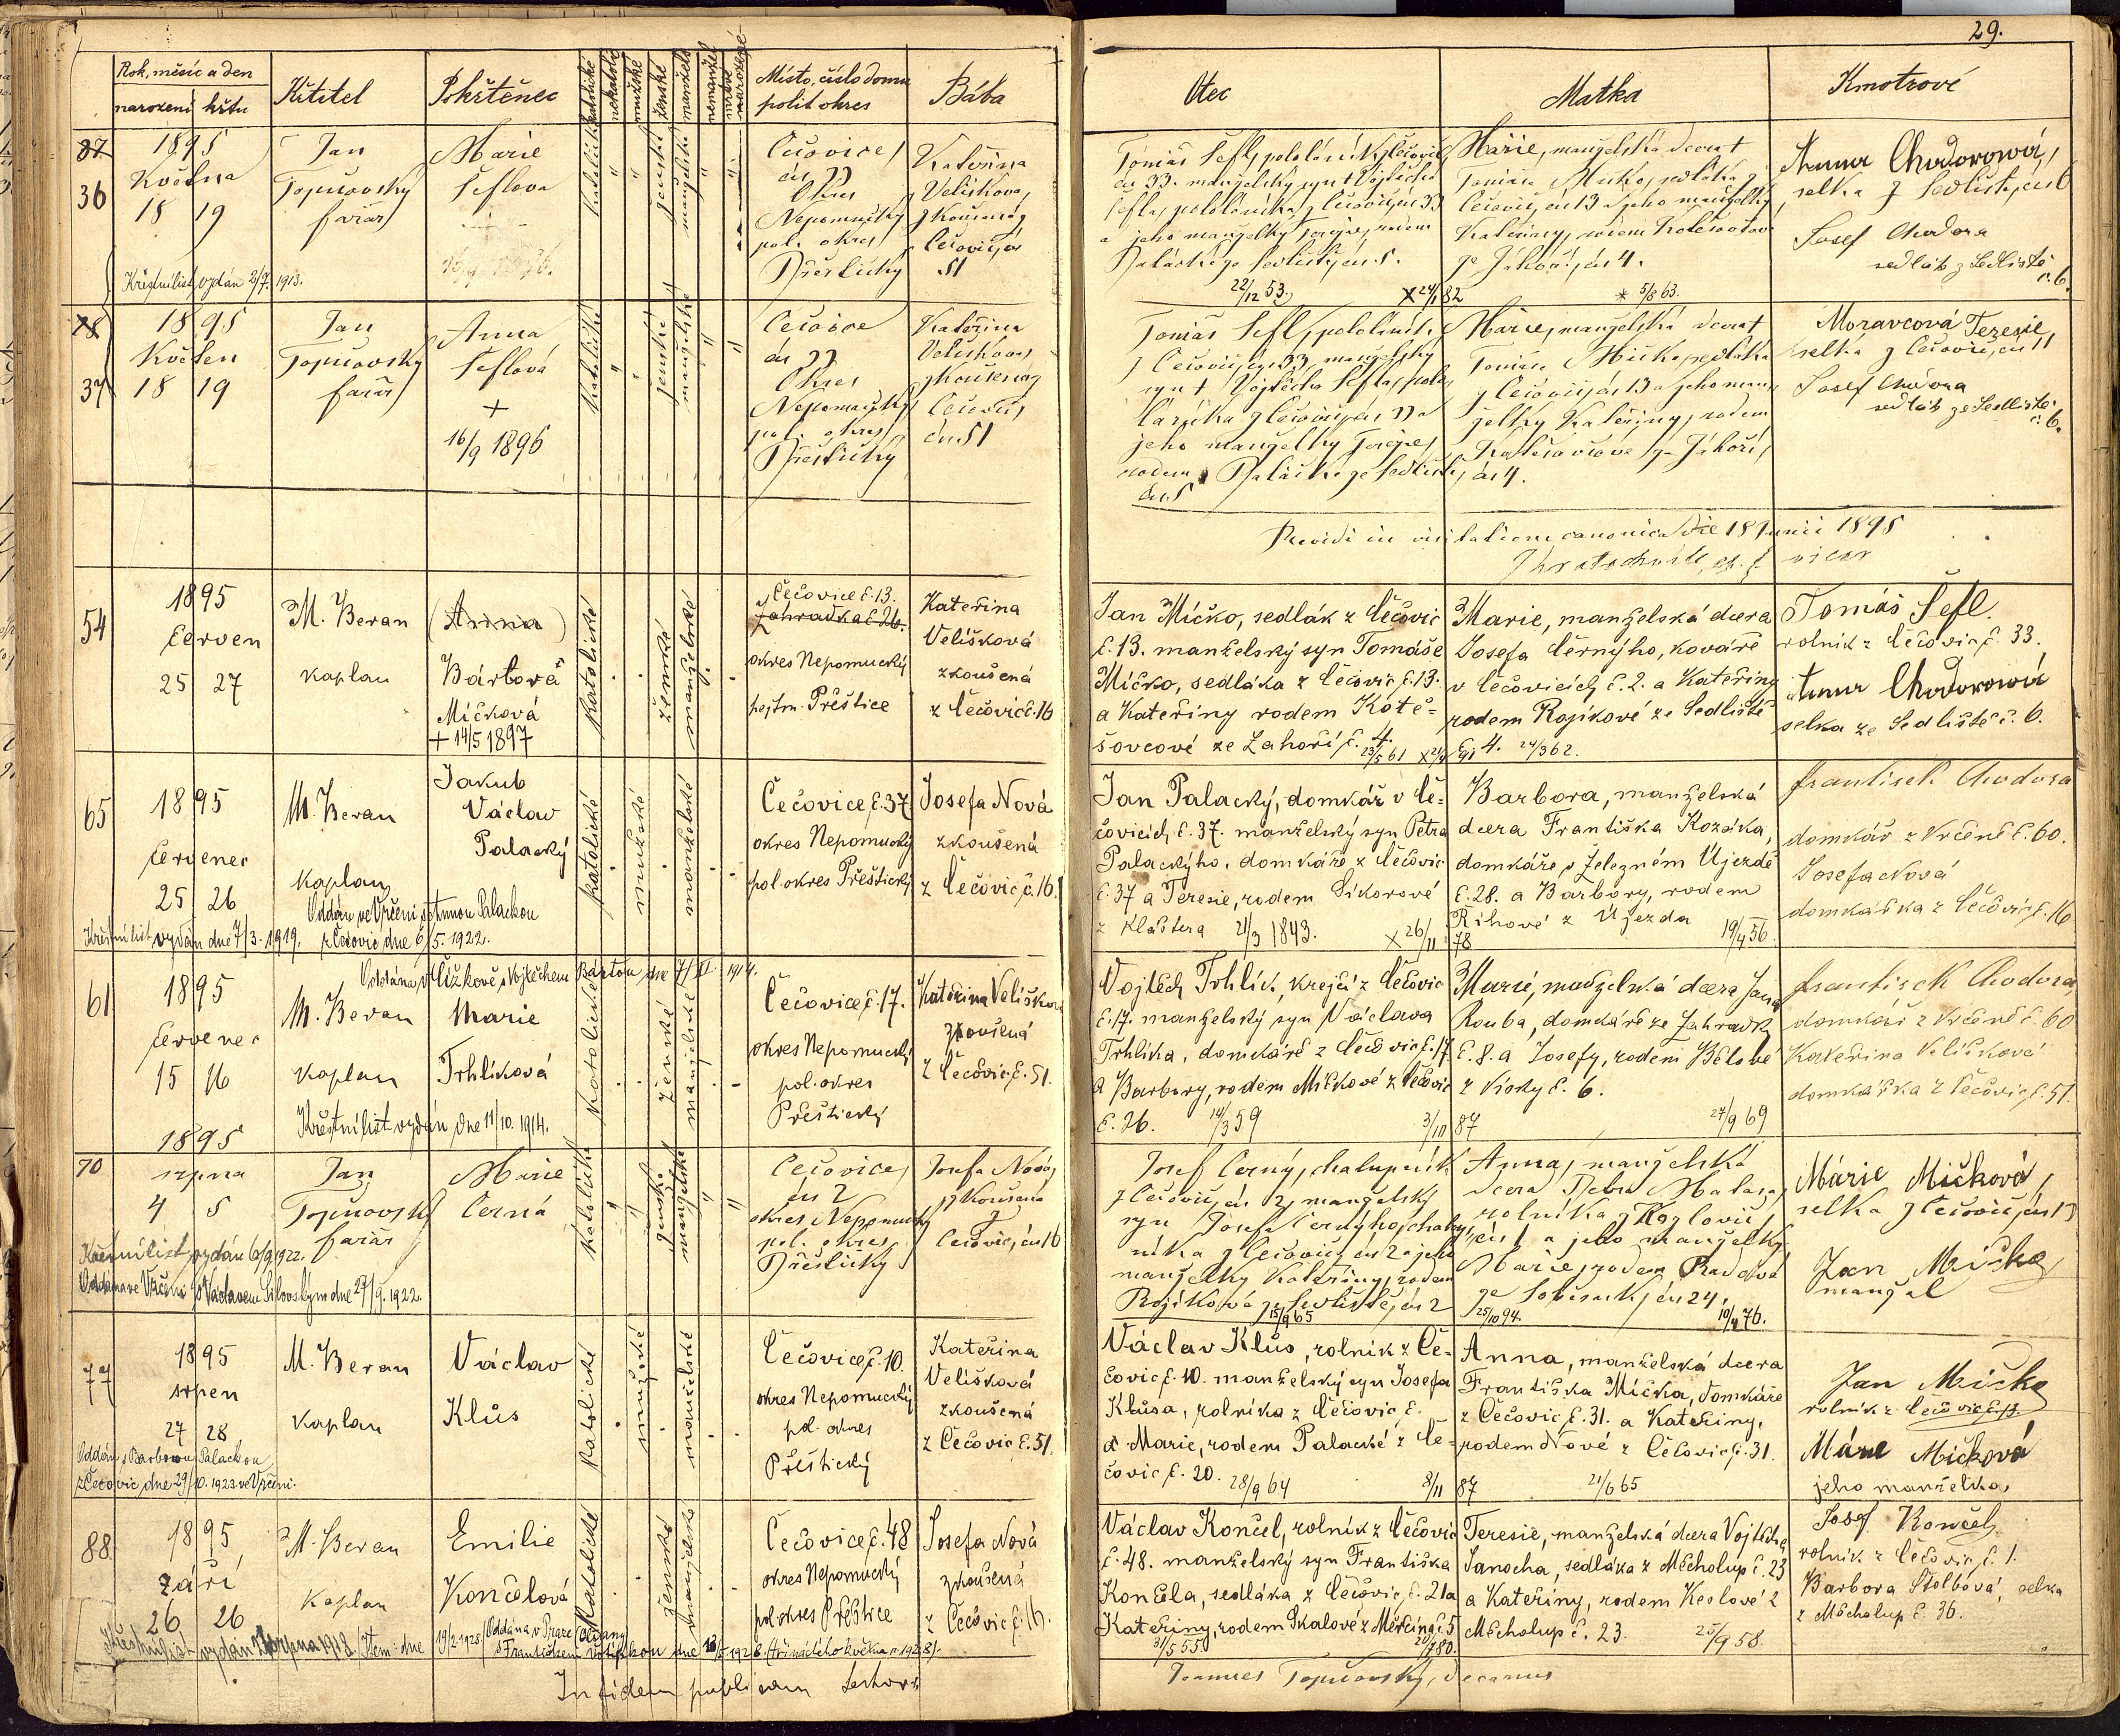 29.
Rok, měsíc a den
narození křtu
Křtitel
Pokřtěnec
katolické
nekatol.
mužské
ženské
manžels.
nemanžel
mrtvě
narozené
Místo, číslo domu
polit okres
Bába
Otec
Matka
Kmotrové
37
36
1895
Května
18 19
Jan
Topičovský
farář
Marie
Šeflova
Křestní list vydán 2/7. 1913.
katolické
ženské
manželské
Čečovice
čís 33
Okres
Nepomucký
pol. okres
Přeštický
Kateřina
Velišková
zkoušená z
Čečovic čís
51
Tomáš Šefl, pololáník z Čečovic
čís 33. manželský syn † Vojtěcha
Šefla, pololáníka z Čečovic čís 33
a jeho manželky Terezie, rodem
Palácké ze Sedliště čís. 5.
22/12 53. × 24/1 82
Marie, manželská dcera †
Tomáše Míčko, sedláka z
Čečovic, čís 13 a jeho manželky
Kateřiny, rodem Kotěšovcové
ze Záhoří, čís 4.
* 5/8 63.
Anna Chodorová,
selka z Sedliště, čís 6
Josef Chodora
sedlák z Sedliště
č. 6.
37
1895
Květen
18 19
Jan
Topičovský
farář
Anna
Šeflová
+
16/9 1896
katolické
ženské
manželské
Čečovice
čís 33
Okres
Nepomucký
pol. okres
Přeštický
Kateřina
Velišková
zkoušená z
Čečovic,
čís. 51
Tomáš Šefl, pololáník
z Čečovic, čís 33, manželský
syn † Vojtěcha Šefla, polo
láníka z Čečovic, čís 33 a
jeho manželky Terezie,
rodem Palácké ze Sedliště,
čís. 5
Marie, manželská dcera †
Tomáše Míčko, sedláka
z Čečovic, čís 13 a jeho man
želky Kateřiny, rodem
Kotěšovcové ze Záhoří,
čís 4.
Moravcová Terezie,
selka z Čečovic, čís 11
Josef Chodora
sedlák ze Sedliště
č. 6.
Revidi in visitatione canonica die 18 Junii 1895
vicar
54
1895
Červen
25 27
M. Beran
kaplan
(Anna)
Bárbora
Míčková
+ 14/5 1897
katolické
ženské
manželské
Čečovice č. 13.
Zahradka č. 26.
okres Nepomucký
hejtm. Přeštice
Kateřina
Velišková
zkoušená
z Čečovic č. 16
Jan Míčko, sedlák z Čečovic
č. 13. manželský syn Tomáše
Míčko, sedláka z Čečovic č. 13.
a Kateřiny rodem Kotě-
šovcové ze Zahoří č. 4.
23/5 61
Marie, manželská dcera
Josefa Černýho, kováře
v Čečovicích č. 2. a Kateřiny
rodem Rojíkové ze Sedliště
č. 4. 24/3 62.
Tomáš Šefl.
rolník z Čečovic č. 33.
Anna Chodorová
selka ze Sedliště č. 6.
65
1895
červenec
25 26
M. Beran
kaplan
Jakub
Václav
Palacký
Oddán ve Vrčeni s Annou Palackou
z Čečovic, dne 6/5. 1922.
Křestní list vydán dne 7/3. 1919.
katolické
mužské
manželské
Čečovice, č. 37
okres Nepomucký
pol. okres Přeštický
Josefa Nová
zkoušená
z Čečovic, č. 16.
Jan Palacký, domkář v Če-
čovicích, č. 37. manželský syn Petra
Palackýho, domkáře z Čečovic
č. 37 a Terezie, rodem Sikorové
z Kláštera 21/3 1843. × 26/11 78
Barbora, manželská
dcera Františka Kozáka,
domkáře v Železném Újezdě
č. 28. a Barbory, rodem
Říhové z Újezda 19/4 56.
František Chodora
domkář z Vrčeně č. 60.
Josefa Nová
domkářka z Čečovic, č. 16
61
1895
červenec
15 16
Oddána v Čížkově s Vojtěchem Bártou dne 7/II. 1914.
M. Beran
kaplan
Marie
Trhlíková
Křestní list vydán dne 11/10. 1914.
katolické
ženské
manželské
Čečovice č. 17.
okres Nepomucký
pol. okres
Přeštický
Kateřina Velišková
zkoušená
z Čečovic, č. 51.
Vojtěch Trhlík, krejčí z Čečovic
č. 17. manželský syn Václava
Trhlíka, domkáře z Čečovic č. 17
a Barbory, rodem Míčkové z Čečovic
č. 26. 14/3 59 3/11 87
Marie, manželská dcera Jana
Rouba, domkáře ze Zahradky
č. 8. a Josefy, rodem Bělové
z Vísky č. 6.
27/9 69
František Chodora,
domkář z Vrčeně č. 60
Kateřina Velišková
domkářka z Čečovic č. 51.
70
1895
srpna
4 5
Jan
Topičovský
farář
Marie
Černá
Křestní list vydán 6/9 1922.
Oddána ve Vrčeni s Václavem Silovským dne 27/9. 1922.
katolické
ženské
manželské
Čečovice,
čís 2
okres Nepomucký
pol. okres
Přeštický
Josefa Nová,
zkoušená
z
Čečovic, čís 16
Josef Černý, chalupník
z Čečovic, čís 2, manželský
syn Josefa Černýho, chalup
níka z Čečovic, čís 2 a jeho
manželky Kateřiny, rodem
Rojíková ze Sedliště, čís 2
15/9 65
Anna, manželská
dcera Petra Halasa,
rolníka z Kozlovic,
čís 1 a jeho manželky
Marie, rodem Radová
ze Soběsuk, čís 24.
25/10 94. 10/4 76.
Márie Míčková,
selka z Čečovic, čís 13
Jan Míčko
manžel
77
1895
srpen
27 28
M. Beran
kaplan
Václav
Klůs
Oddán s Barborou Palackou
z Čečovic, dne 29/10. 1923 ve Vrčeni.
katolické
mužské
manželské
Čečovice, č. 10.
okres Nepomucký
pol. okres
Přeštický
Kateřina
Velišková
zkoušená
z Čečovic č. 51.
Václav Klůs, rolník z Če-
čovic č. 10. manželský syn Josefa
Klůsa, rolníka z Čečovic č.
a Marie, rodem Palacké z Če-
čovic č. 20. 28/9 64 8/11 87
Anna, manželská dcera
Františka Míčka, domkáře
z Čečovic, č. 31. a Kateřiny,
rodem Nové z Čečovic č. 31.
21/6 65
Jan Míčko
rolník z Čečovic č. 13.
Márie Míčková
jeho manželka,
88
1895
září
26 26
M. Beran
kaplan
Emilie
Končelová
katolické
ženské
manželské
Čečovice č. 48
okres Nepomucký
pol. okres Přeštice
Josefa Nová
zkoušená
z Čečovic č. 16.
Václav Končel, rolník z Čečovic
č. 48. manželský syn Františka
Končela, sedláka z Čečovic, č. 21 a
Kateřiny, rodem Skalové z Měrčína č. 5
31/5 55
Teresie, manželská dcera Vojtěcha
Janocha, sedláka z Měcholup č. 23
a Kateřiny, rodem Keslové z
Měcholup č. 23. 25/9 58.
Josef Končel,
rolník z Čečovic, č. 1.
Barbora Štolbová, selka
z Měcholup č. 36.
In fidem publicam
Joannes Topičovský, decanus